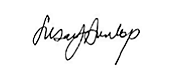 Susan Dunlop